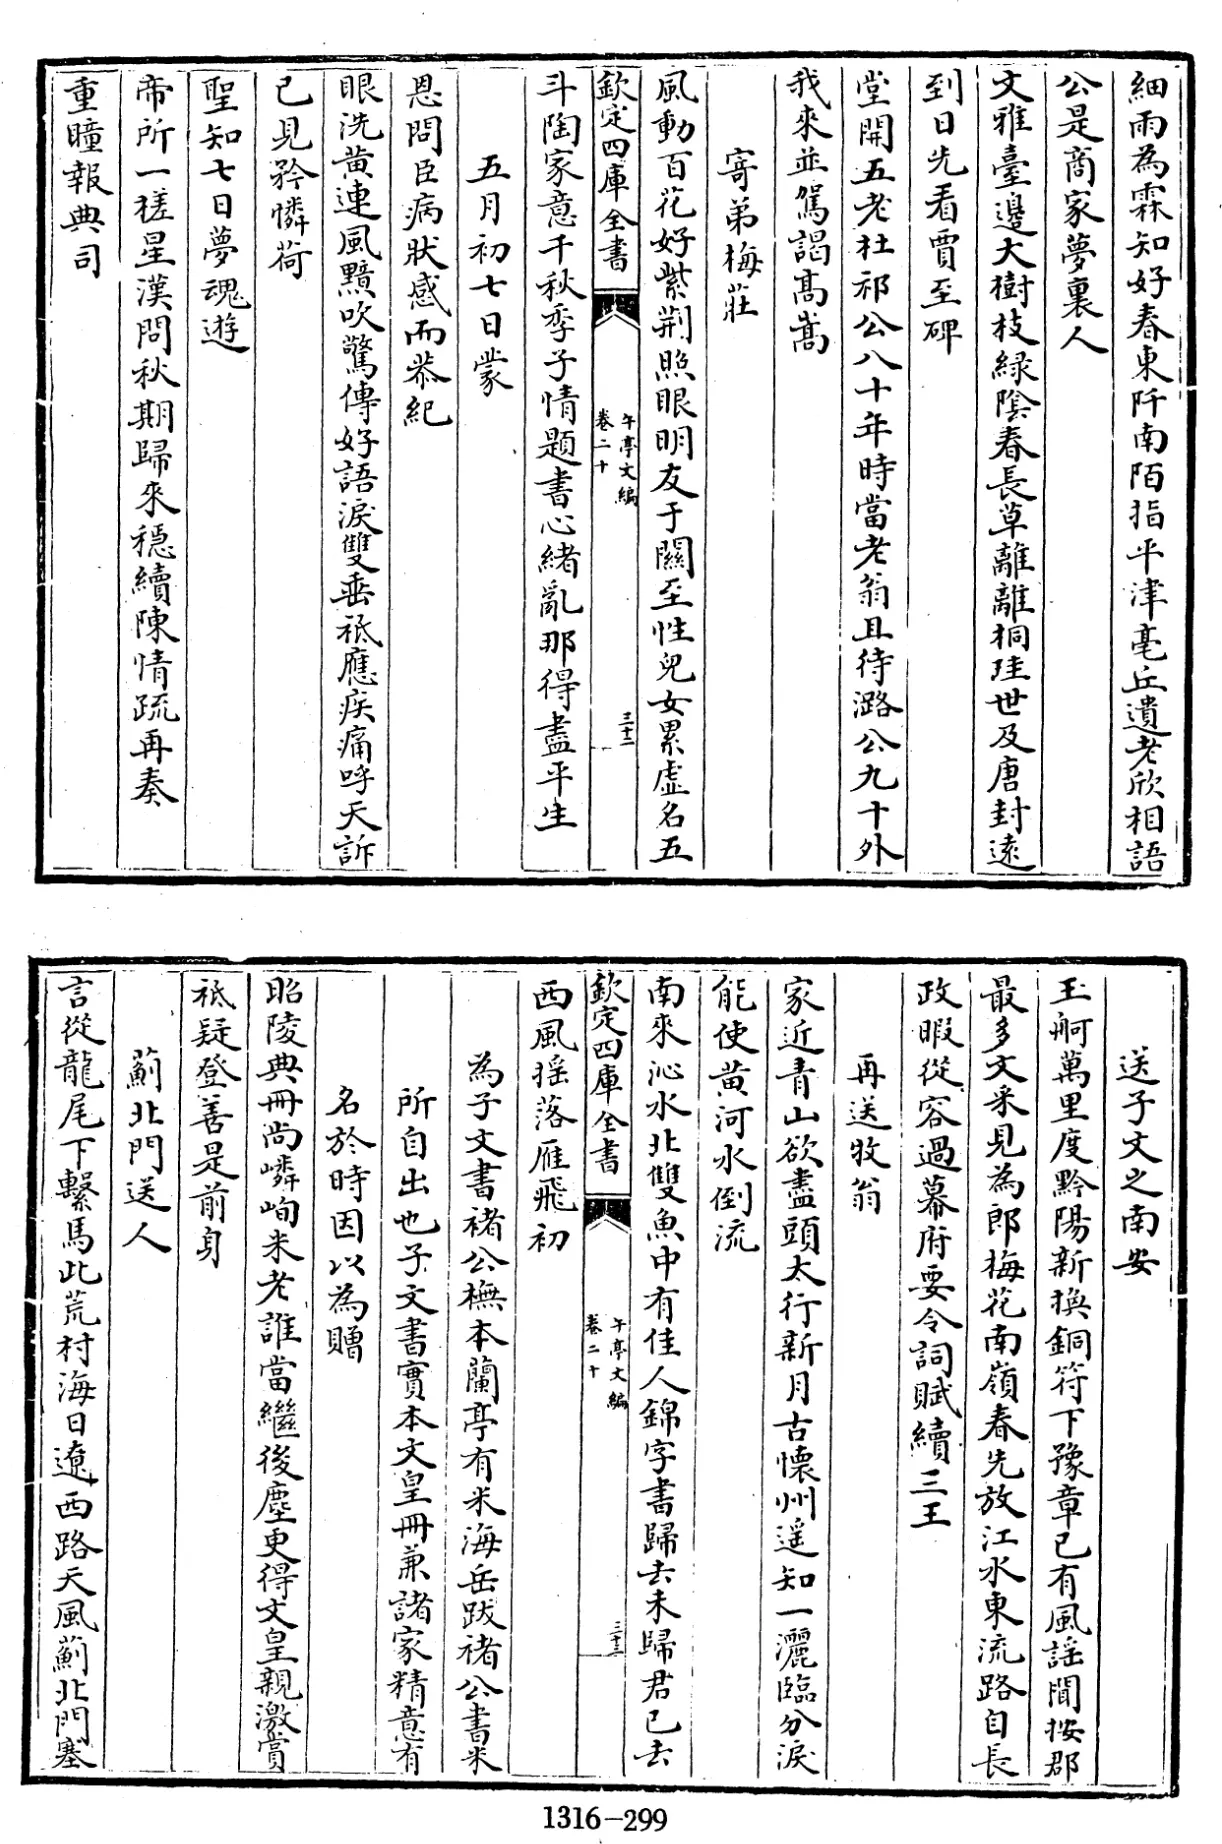 細雨為霖知好春東阡南陌指平津亳丘遺老欣相語
公是商家夢裏人
文雅臺邊大樹枝緑陰春長草離離桐珪世及唐封逺
到日先看賈至碑
堂開五老杜祁公八十年時當老翁且待潞公九十外
我來並駕謁髙嵩
寄弟梅莊
風動百花好紫荆照眼明友于關至性兒女累虛名五
欽定四庫全書
午亭文編
卷二十
三十二
斗陶家意千秋季子情題書心緒亂那得盡平生
五月初七日蒙
恩問臣病狀感而恭紀
眼洗黄連風黠吹驚傳好語淚雙垂祇應疾痛呼天訴
已見矜憐荷
聖知七日夢魂遊
帝所一槎星漢問秋期歸來穏續陳情疏再奏
重瞳報典司
送子文之南安
玉舸萬里度黔陽新換銅符下豫章已有風謡間按郡
最多文采見為郎梅花南嶺春先放江水東流路自長
政暇從容過幕府要令詞賦續三王
再送牧翁
家近青山欲盡頭太行新月古懐州遥知一灑臨分淚
能使黄河水倒流
南來沁水北雙魚中有佳人錦字書歸去未歸君已去
欽定四庫全書
午亭文編
卷二十
三十三
西風揺落雁飛初
為子文書禇公橅本蘭亭有米海岳跋禇公書米
所自出也子文書實本文皇冊兼諸家精意有
名於時因以為贈
昭陵典冊尚嶙峋米老誰當繼後塵更得文皇親激賞
祇疑登善是前身
薊北門送人
言從龍尾下繫馬此荒村海日遼西路天風薊北門塞
1316-299